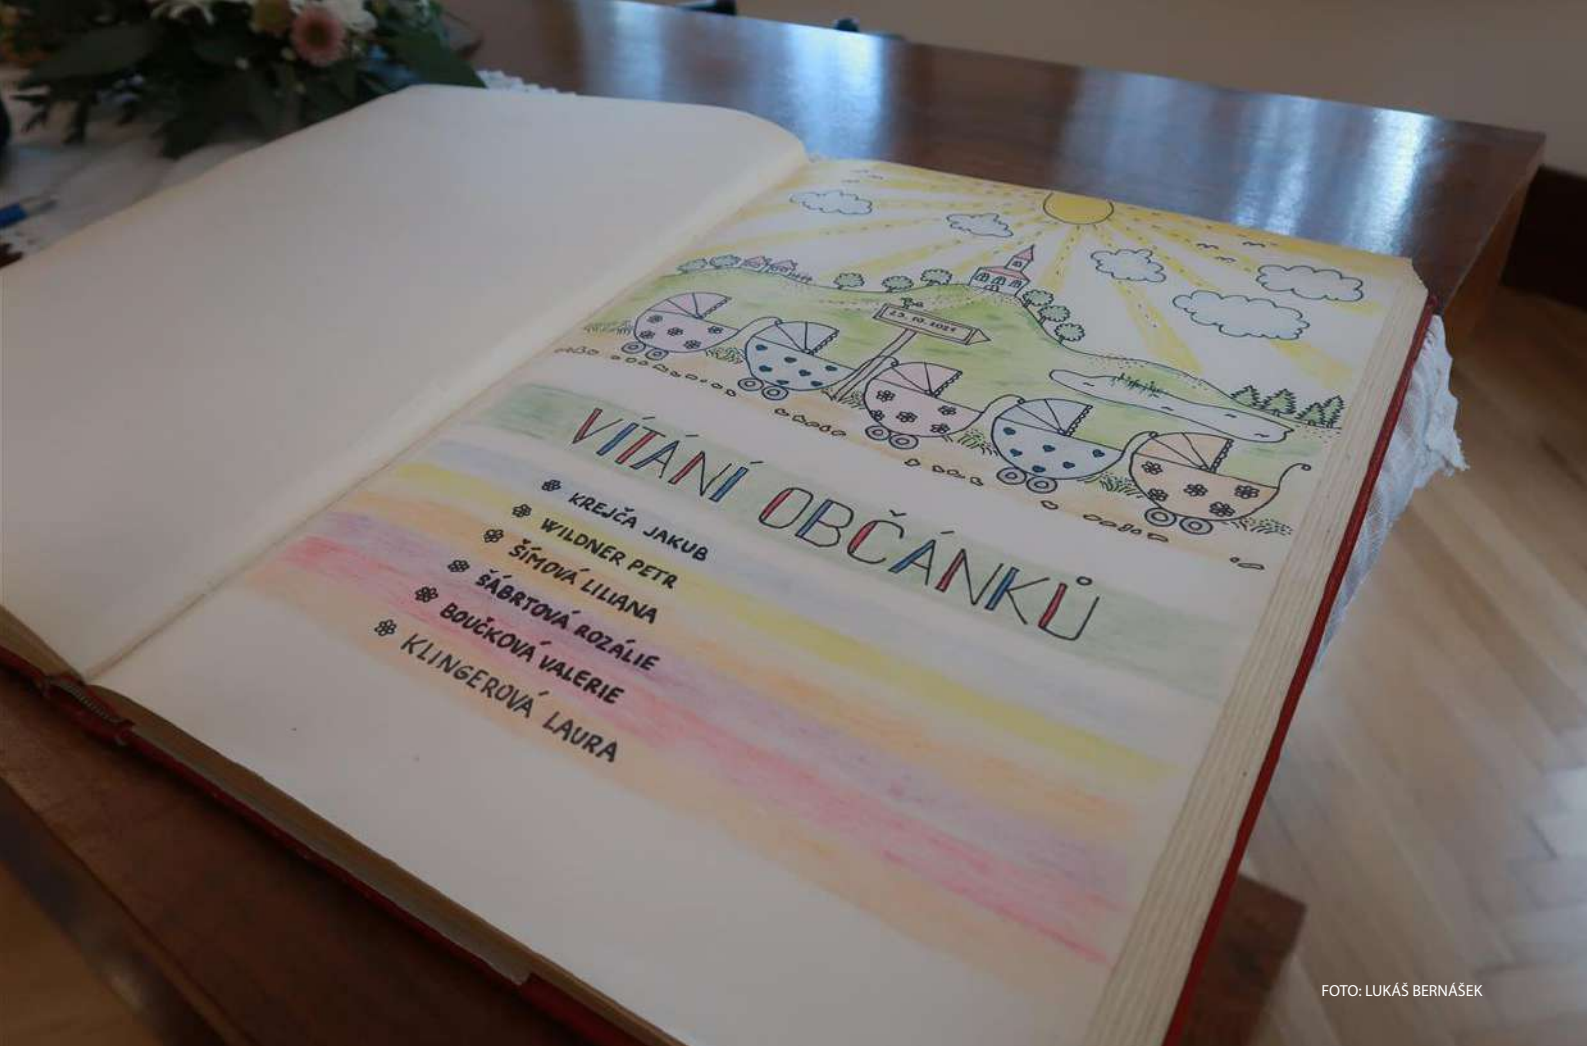 23. 10. 2021
VÍTÁNÍ OBČÁNKŮ
KREJČA JAKUB
WILDNER PETR
ŠÍMOVÁ LILIANA
ŠÁBRTOVÁ ROZÁLIE
BOUČKOVÁ VALERIE
KLINGEROVÁ LAURA
FOTO: LUKÁŠ BERNÁŠEK